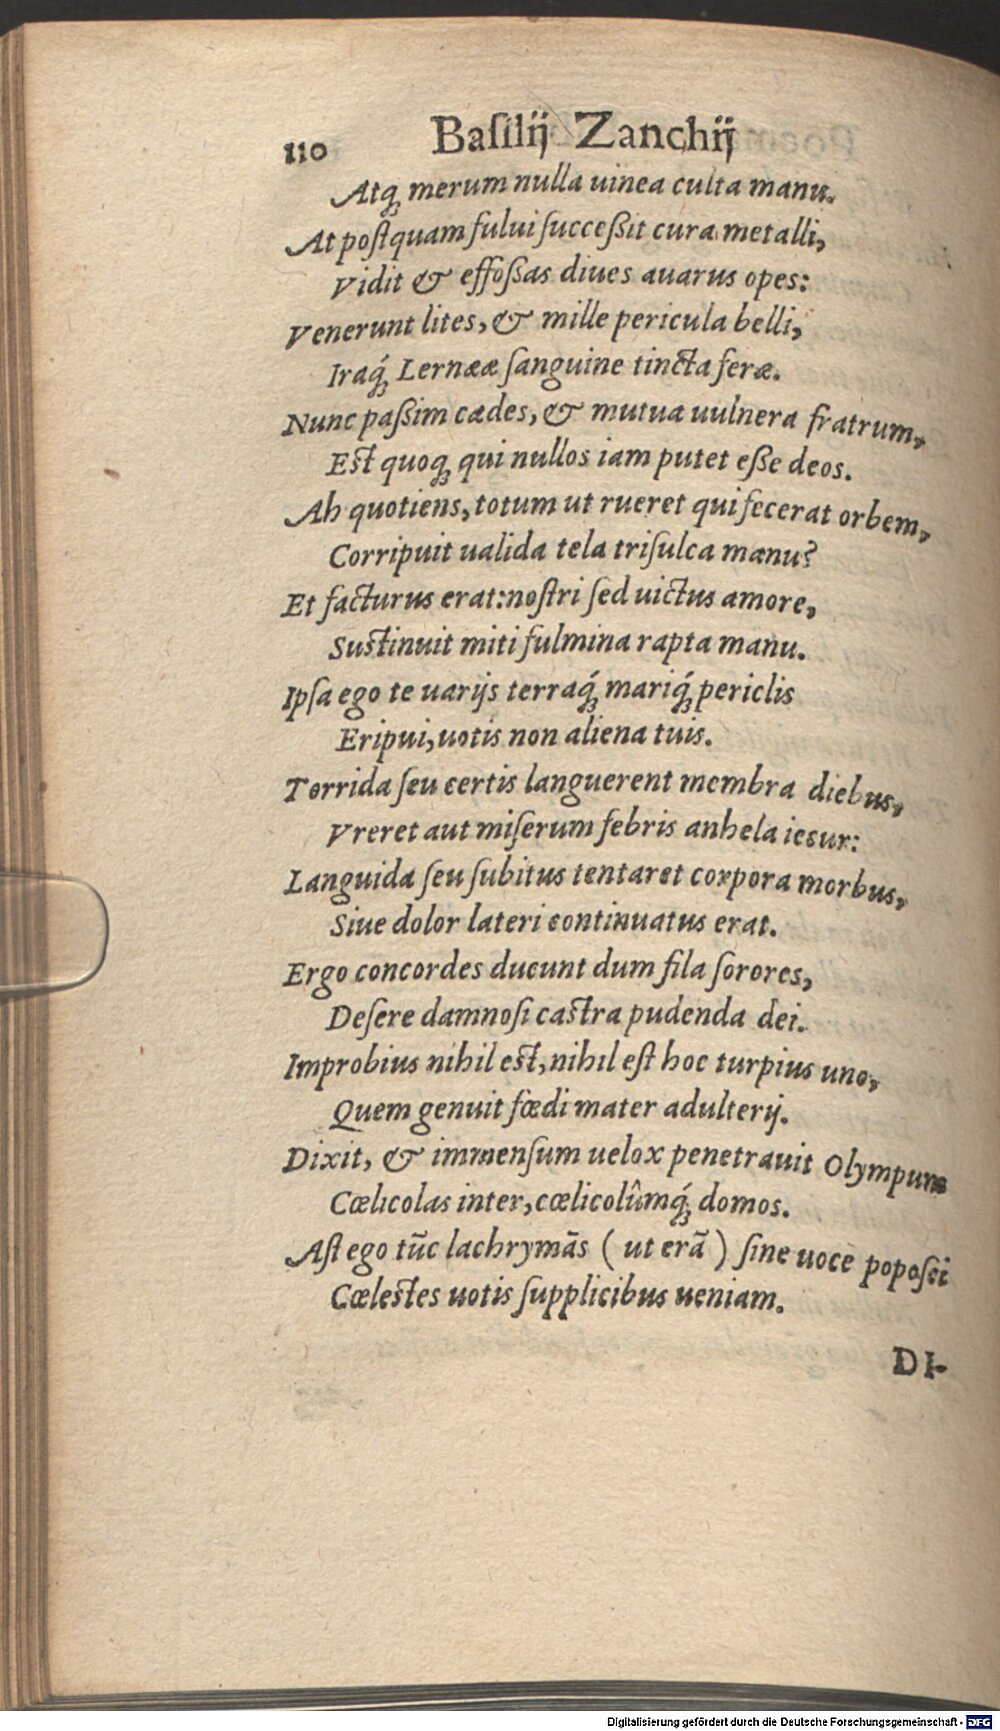 110 Baſilij Zanchij
Atq; merum nulla uinea culta manu.
At poſtquam fului ſucceßit cura metalli,
Vidit & effoßas diues auarus opes:
Venerunt lites, & mille pericula belli,
Iraq́; Lernææ ſanguine tincta feræ.
Nunc paßim cædes, & mutua uulnera fratrum,
Eſt quoq; qui nullos iam putet eße deos.
Ah quotiens, totum ut rueret qui fecerat orbem,
Corripuit ualida tela triſulca manu?
Et facturus erat: noſtri ſed uictus amore,
Suſtinuit miti fulmina rapta manu.
Ipſa ego te uarijs terraq́; mariq́; periclis
Eripui, uotis non aliena tuis.
Torrida ſeu certis languerent membra diebus,
Vreret aut miſerum febris anhela iecur:
Languida ſeu ſubitus tentaret corpora morbus,
Siue dolor lateri continuatus erat.
Ergo concordes ducunt dum fila ſorores,
Deſere damnoſi caſtra pudenda dei.
Improbius nihil eſt, nihil eſt hoc turpius uno,
Quem genuit fœdi mater adulterij.
Dixit, & immenſum uelox penetrauit Olympum
Cœlicolas inter, cœlicolûmq́; domos.
Aſt ego tūc lachrymãs ( ut erã ) ſine uoce popoſci
Cœleſtes uotis ſupplicibus ueniam.
DI-
Digitalisierung gefördert durch die Deutsche Forschungsgemeinschaft - DFG